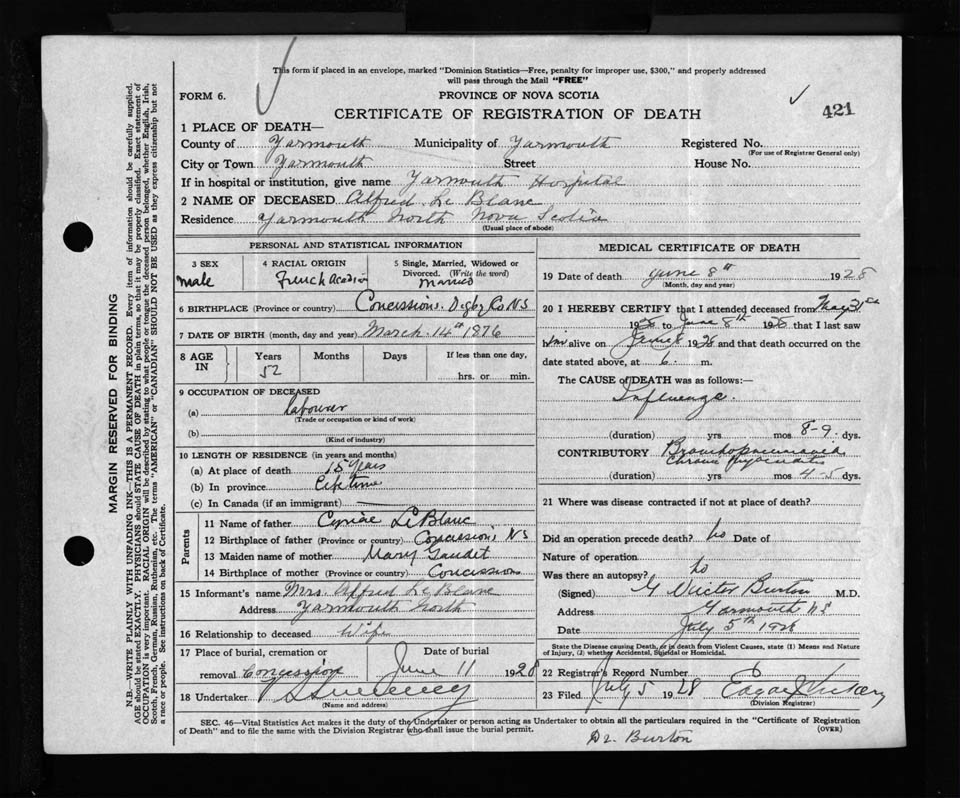 This form if placed in an envelope, marked "Dominion Statistics—Free, penalty for improper use, $300," and properly addressed
will pass through the Mail "FREE"
FORM 6.
PROVINCE OF NOVA SCOTIA
421
CERTIFICATE OF REGISTRATION OF DEATH
1 PLACE OF DEATH—
County of Yarmouth Municipality of Yarmouth Registered No.
(For use of Registrar General only)
City or Town Yarmouth Street House No.
If in hospital or institution, give name Yarmouth Hospital
2 NAME OF DECEASED Alfred Le Blanc
Residence Yarmouth North Nova Scotia
(Usual place of abode)
PERSONAL AND STATISTICAL INFORMATION
3 SEX
male
4 RACIAL ORIGIN
French Acadian
5 Single, Married, Widowed or
Divorced. (Write the word)
Married
6 BIRTHPLACE (Province or country) Concessions. Digby Co NS
7 DATE OF BIRTH (month, day and year) March. 14th 1876
8 AGE IN
Years Months Days If less than one day,
52
hrs. or min.
9 OCCUPATION OF DECEASED
(a) Labourer
(Trade or occupation or kind of work)
(b)
(Kind of industry)
10 LENGTH OF RESIDENCE (in years and months)
(a) At place of death 15 years
(b) In province Life time
(c) In Canada (if an immigrant)
Parents
11 Name of father LeBlanc
12 Birthplace of father (Province or country) Concessions, NS
13 Maiden name of mother Mary Gaudet
14 Birthplace of mother (Province or country) Concessions
15 Informant's name Mrs. Alfred Le Blanc
Address Yarmouth North
16 Relationship to deceased Wife
17 Place of burial, cremation or Date of burial
removal Concession June 11 1928
18 Undertaker
(Name and address)
MEDICAL CERTIFICATE OF DEATH
19 Date of death June 8th 1928
(Month, day and year)
20 I HEREBY CERTIFY that I attended deceased from May 31st
1928 to June 8th 1928 that I last saw
him alive on June 8 1928 and that death occurred on the
date stated above, at 6. m.
The CAUSE of DEATH was as follows:—
Influenza.
(duration) yrs mos 8-9 dys.
CONTRIBUTORY Bronchopneumonia
Chronic
(duration) yrs mos 4-5 dys.
21 Where was disease contracted if not at place of death?
Did an operation precede death? No Date of
Nature of operation
Was there an autopsy? No
(Signed) G Victor Burton M.D.
Address Yarmouth NS
Date July 5th 1928
State the Disease causing Death, or in death from Violent Causes, state (1) Means and Nature
of Injury, (2) whether Accidental, Suicidal or Homicidal.
22 Registrar's Record Number
23 Filed July 5 1928 Edgar J Vickery
(Division Registrar)
SEC. 46—Vital Statistics Act makes it the duty of the Undertaker or person acting as Undertaker to obtain all the particulars required in the "Certificate of Registration
of Death" and to file the same with the Division Registrar who shall issue the burial permit.
(OVER)
Dr. Burton
MARGIN RESERVED FOR BINDING
N.B.—WRITE PLAINLY WITH UNFADING INK—THIS IS A PERMANENT RECORD. Every item of information should be carefully supplied.
AGE should be stated EXACTLY. PHYSICIANS should STATE CAUSE OF DEATH in plain terms, so that it may be properly classified. Exact statement of
OCCUPATION is very important. RACIAL ORIGIN will be described by stating to what people or tongue the deceased person belonged, whether English, Irish,
Scotch, French, German, Russian, Ruthenian, etc. The terms "AMERICAN" or "CANADIAN" SHOULD NOT BE USED as they express citizenship but not
a race or people. See instructions on back of Certificate.